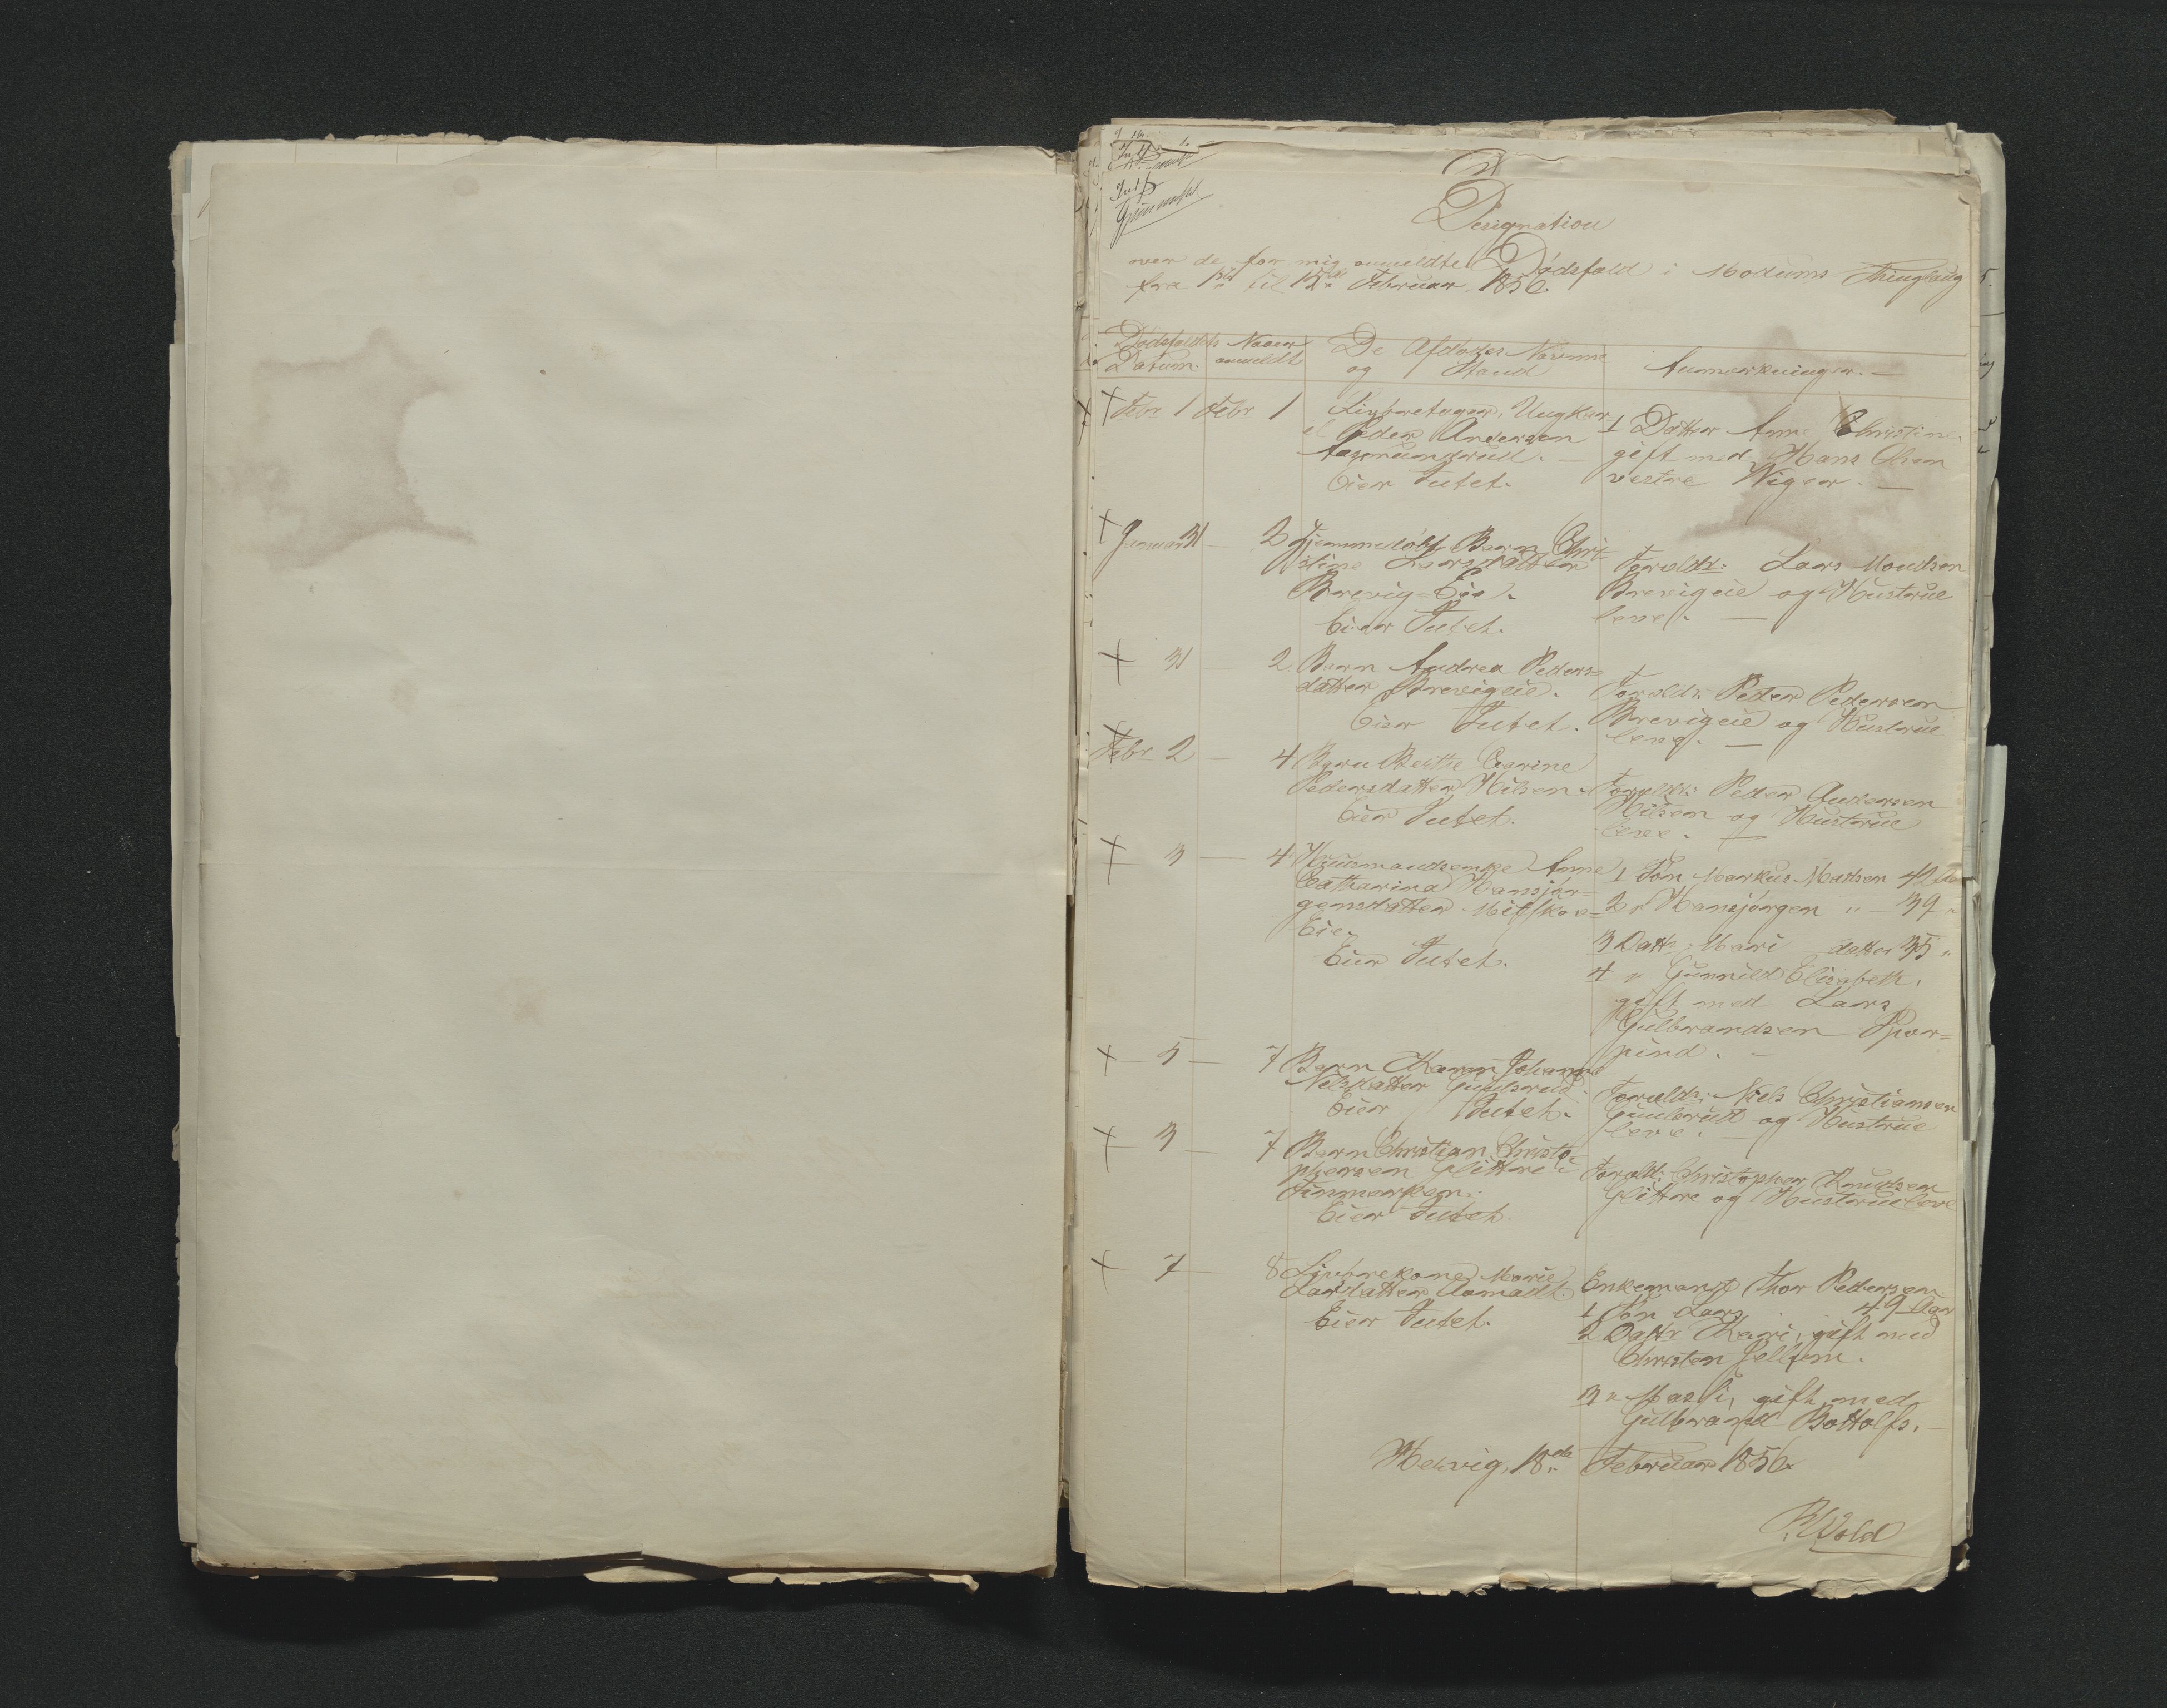 Designation
over de for mig anmeldte Dødsfald i Modums Thinglaug
fra 1ste til 15de Februar 1856.
Dødsfaldets Datum. Naaer anmeldt De Afdødes Navnne og Stand Anmærkninger. —
† Febr 1 Febr 1 Livøretager, Ungkarl
Peder Andersen
Eier Intet.
1 Datter Anne Christine
gift med Hans Olsen
vestre Wiger. —
† Januar 31 — 2 Hjemmedøbt Barn Chri-
stine Larsdatter
Brevig-Eie.
Eier Intet.
Foreldr: Lars Moudsen
Brevigeie og Hustrue
leve. —
† 31 — 2. Barn Andrea Peders-
datter Brevigeie.
Eier Intet.
Foreldr: Peder Pedersen
Brevigeie og Hustrue
leve. —
† Febr 2 — 4 Barn Berthe Carine
Pedersdatter Hilsen.
Eier Intet.
Foreldr: Peder Andersen
Hilsen og Hustrue
leve. —
† 3 — 4 Huusmandsenke Anne
Catharina Hansjør-
gensdatter
Eie.
Eier Intet.
1 Søn Markus Madsen 42
2 " Hansjørgen " — 39 "
3 Dattr Mari — datter 35 "
4 " Gunnild Elisabeth,
gift med Lars
Gulbrandsen Spor-
pind. —
† 5 — 7 Barn Karen Johanne
Nilsdatter
Eier Intet.
Foreldr: Niels Christiansen
og Hustrue
leve. —
† 3 — 7 Barn Christian Christo-
phersen Glittre i
Finmarken.
Eier Intet.
Foreld: Christopher Knudsen
Glittre og Hustrue leve
† 7 — 8 Livørekone Marie
Larsdatter Aamodt.
Eier Intet.
Enkemand Thor Pedersen
1 Søn Lars 49 Aar
2 Dattr Kari, gift med
Christen
3 " gift med
Gulbrand Bottolfs. —
Hervig, 18de Februar 1856
Wold